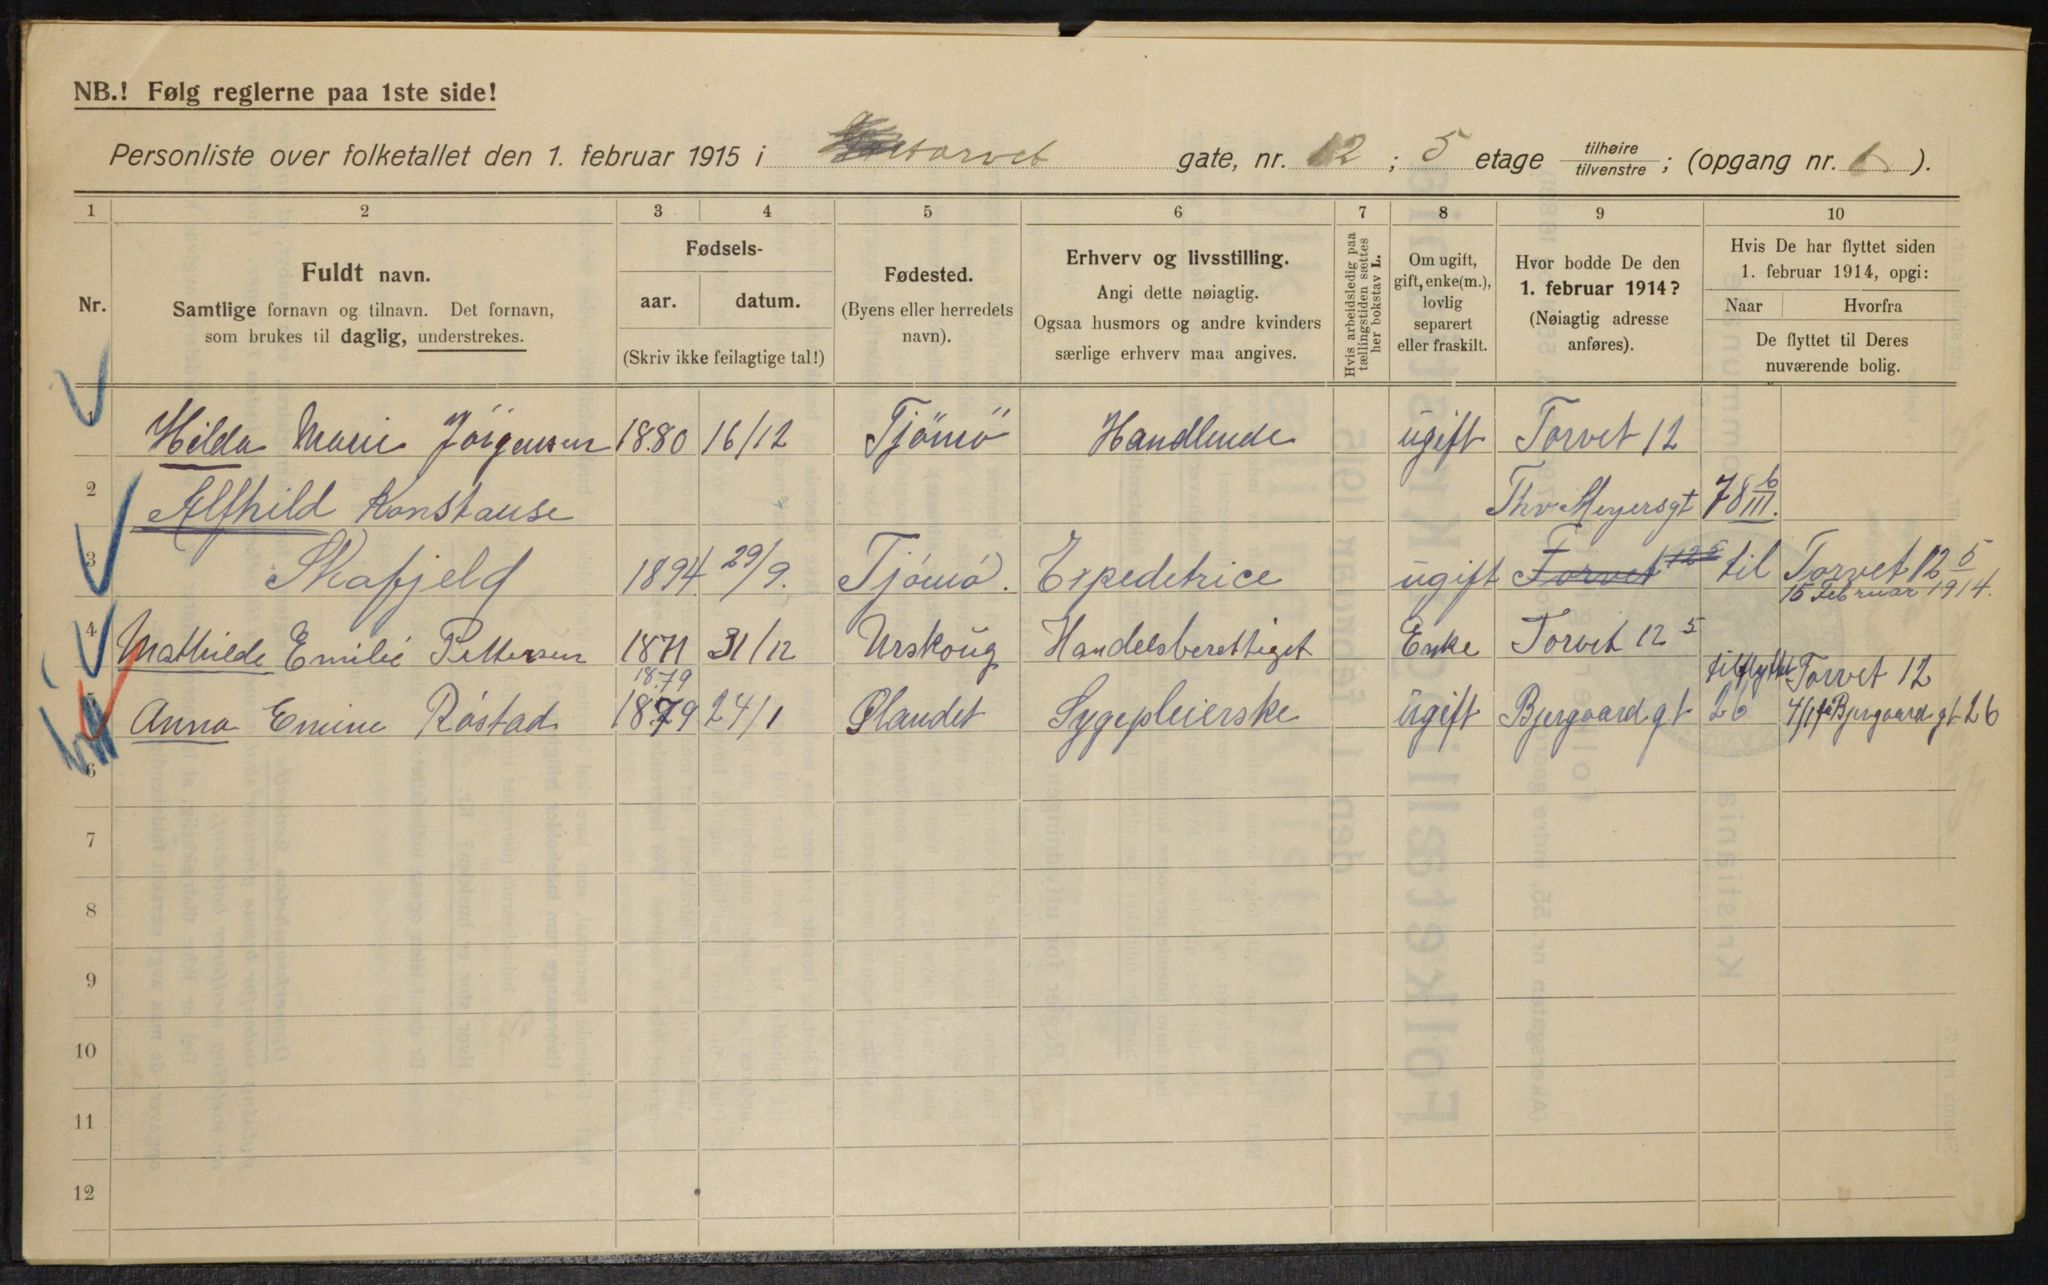 NB.! Følg reglerne paa 1ste side!
Personliste over folketallet den 1. februar 1915 i torvet gate, nr. 12 ; 5 etage tilhøire tilvenstre ; (opgang nr. ).
1 2 3 4 5 6 7 8 9 10
Nr.
Fuldt navn.
Samtlige fornavn og tilnavn. Det fornavn,
som brukes til daglig, understrekes.
Fødsels-
aar. datum.
(Skriv ikke feilagtige tal!)
Fødested.
(Byens eller herredets
navn).
Erhverv og livsstilling.
Angi dette nøiagtig.
Ogsaa husmors og andre kvinders
særlige erhverv maa angives.
Hvis arbeidsledig paa
tællingstiden sættes
her bokstav L.
Om ugift,
gift, enke(m.),
lovlig
separert
eller fraskilt.
Hvor bodde De den
1. februar 1914?
(Nøiagtig adresse
anføres).
Hvis De har flyttet siden
1. februar 1914, opgi:
Naar Hvorfra
De flyttet til Deres
nuværende bolig.
1 Hilda Marie Jörgensen 1880 16/12 Tjömö Handlende ugift Torvet 12
2 Alfhild Konstanse Thv Meyersgt 78 6 III.
3 Skafjeld 1894. 29/9. Tjömö. Expeditrice ugift Torvet 12 5 til Torvet 12 5
15 Februar 1914.
4 Mathilde Emilie Pettersen 1871 31/12 Urskoug Handelsberettiget Enke Torvet 12 5
1879 tilflyttet Torvet 12
5 Anna Emine Röstad 1879 24/1 Ølandet Sygepleierske ugift Bjergaard gt 26 4/1 fra Bjergaard gt 26
6
7
8
9
10
11
12